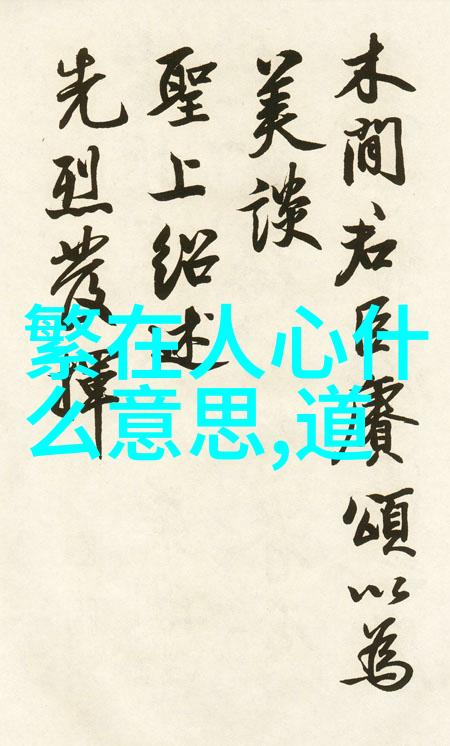 木間君臣賡頌以為
美談
聖上紹述
先烈發揮
繁在人心什
么意思,道